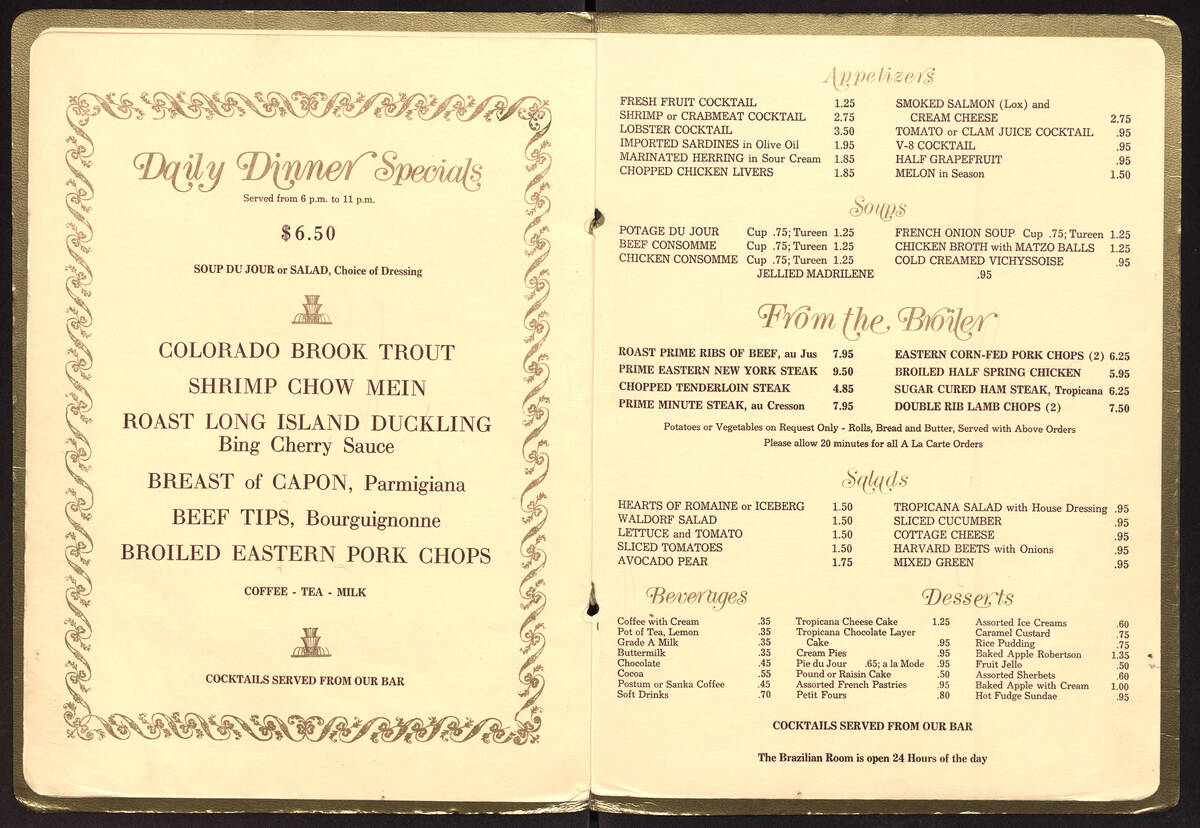 Daily Dinner Specials
Served from 6 p.m. to 11 p.m.
$6.50
SOUP DU JOUR or SALAD, Choice of Dressing
COLORADO BROOK TROUT
SHRIMP CHOW MEIN
ROAST LONG ISLAND DUCKLING
Bing Cherry Sauce
BREAST of CAPON, Parmigiana
BEEF TIPS, Bourguignonne
BROILED EASTERN PORK CHOPS
COFFEE - TEA - MILK
COCKTAILS SERVED FROM OUR BAR
Appetizers
FRESH FRUIT COCKTAIL 1.25
SHRIMP or CRABMEAT COCKTAIL 2.75
LOBSTER COCKTAIL 3.50
IMPORTED SARDINES in Olive Oil 1.95
MARINATED HERRING in Sour Cream 1.85
CHOPPED CHICKEN LIVERS 1.85
SMOKED SALMON (Lox) and
CREAM CHEESE 2.75
TOMATO or CLAM JUICE COCKTAIL .95
V-8 COCKTAIL .95
HALF GRAPEFRUIT .95
MELON in Season 1.50
Soups
POTAGE DU JOUR Cup .75; Tureen 1.25
BEEF CONSOMME Cup .75; Tureen 1.25
CHICKEN CONSOMME Cup .75; Tureen 1.25
FRENCH ONION SOUP Cup .75; Tureen 1.25
CHICKEN BROTH with MATZO BALLS 1.25
COLD CREAMED VICHYSSOISE .95
JELLIED MADRILENE .95
From the Broiler
ROAST PRIME RIBS OF BEEF, au Jus 7.95
PRIME EASTERN NEW YORK STEAK 9.50
CHOPPED TENDERLOIN STEAK 4.85
PRIME MINUTE STEAK, au Cresson 7.95
EASTERN CORN-FED PORK CHOPS (2) 6.25
BROILED HALF SPRING CHICKEN 5.95
SUGAR CURED HAM STEAK, Tropicana 6.25
DOUBLE RIB LAMB CHOPS (2) 7.50
Potatoes or Vegetables on Request Only - Rolls, Bread and Butter, Served with Above Orders
Please allow 20 minutes for all A La Carte Orders
Salads
HEARTS OF ROMAINE or ICEBERG 1.50
WALDORF SALAD 1.50
LETTUCE and TOMATO 1.50
SLICED TOMATOES 1.50
AVOCADO PEAR 1.75
TROPICANA SALAD with House Dressing .95
SLICED CUCUMBER .95
COTTAGE CHEESE .95
HARVARD BEETS with Onions .95
MIXED GREEN .95
Beverages
Coffee with Cream .35
Pot of Tea, Lemon .35
Grade A Milk .35
Buttermilk .35
Chocolate .45
Cocoa .55
Postum or Sanka Coffee .45
Soft Drinks .70
Desserts
Tropicana Cheese Cake 1.25
Tropicana Chocolate Layer
Cake .95
Cream Pies .95
Pie du Jour .65; a la Mode .95
Pound or Raisin Cake .50
Assorted French Pastries .95
Petit Fours .80
Assorted Ice Creams .60
Caramel Custard .75
Rice Pudding .75
Baked Apple Robertson 1.35
Fruit Jello .50
Assorted Sherbets .60
Baked Apple with Cream 1.00
Hot Fudge Sundae .95
COCKTAILS SERVED FROM OUR BAR
The Brazilian Room is open 24 Hours of the day